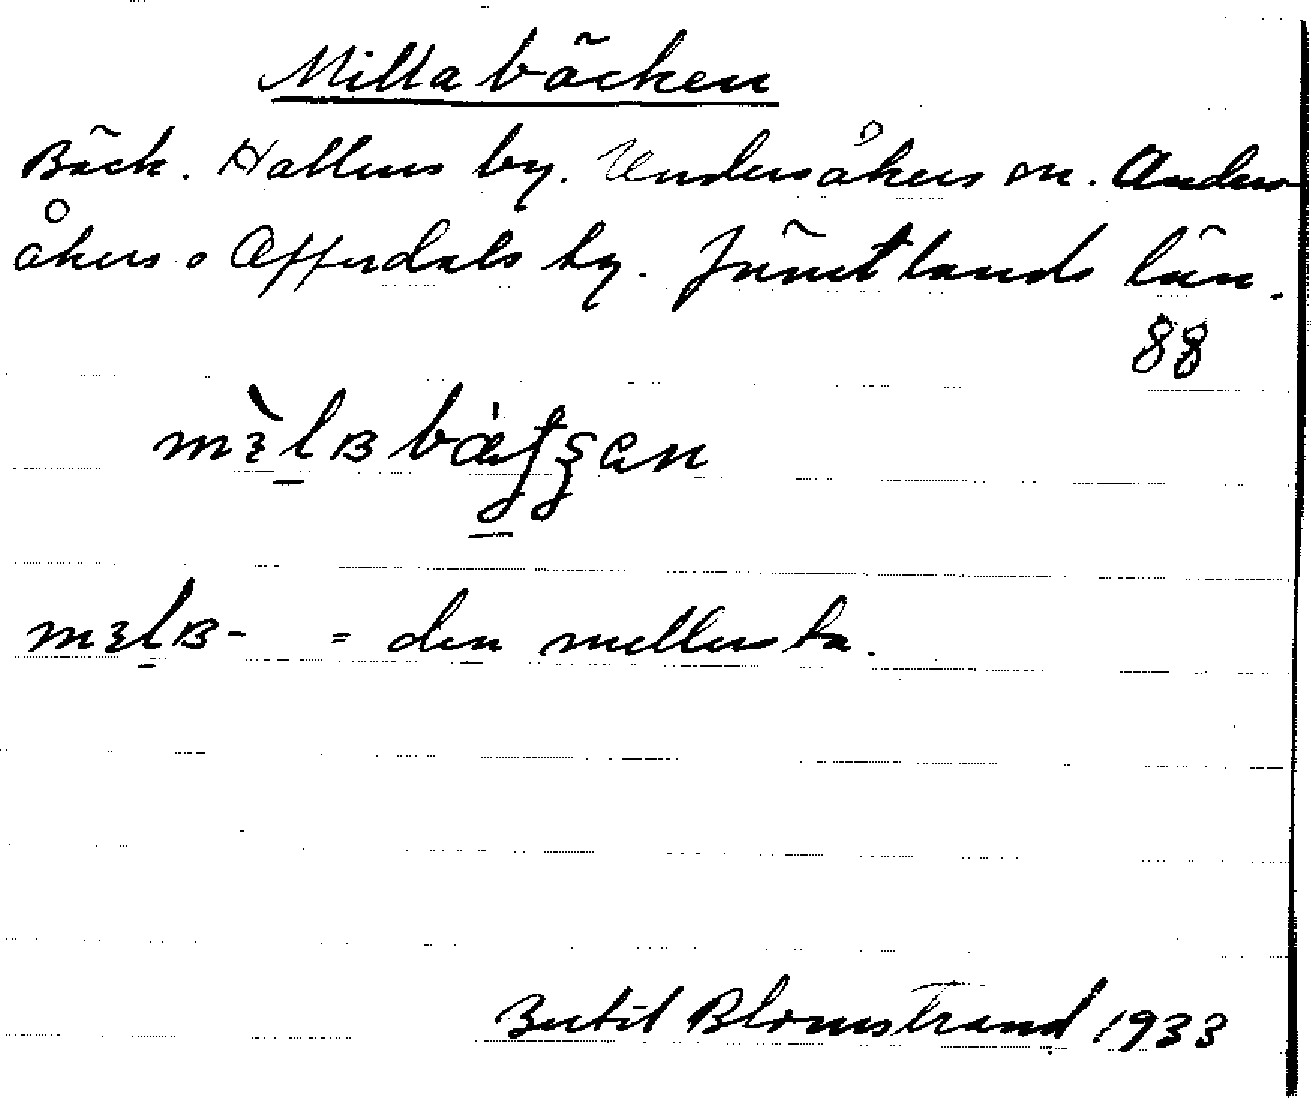 Millabäcken
Bäck. Hallens by. Undersåkers sn. Unders-
åkers o Offerdals tg. Jämtlands län.
88
= den mellersta.
Bertil Blomstrand 1933